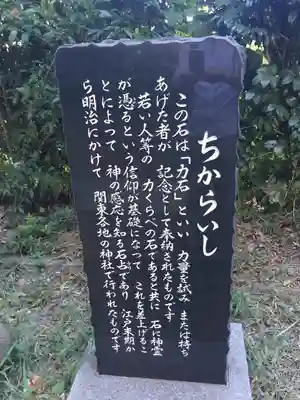 ちからいし
この石は「力石」といい 力量を試み または持ち
あげた者が 記念として奉納されたものです
若い人等の 力くらべの石であると共に 石に神霊
が憑るという信仰が基礎になって これを差上げるこ
とによって 神の感応を知る石占であり 江戸末期か
ら明治にかけて 関東各地の神社で行われたものです